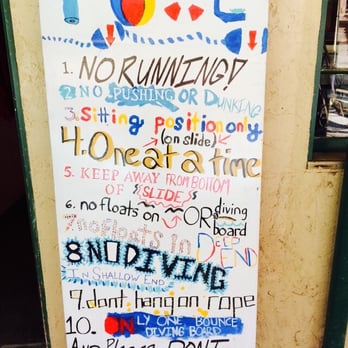 1. NO RUNNING!
2 NO PUSHING OR DUNKING
3. Sitting position only
(on slide)
4. One at a time
5. KEEP AWAY FROM BOTTOM
OF SLIDE
6. no floats on OR diving
board
7 no floats in DEEP
END
8 NO DIVING
IN SHALLOW END
9. dont hang on rope
10. ONLY ONE BOUNCE
DIVING BOARD
AND Please DON'T